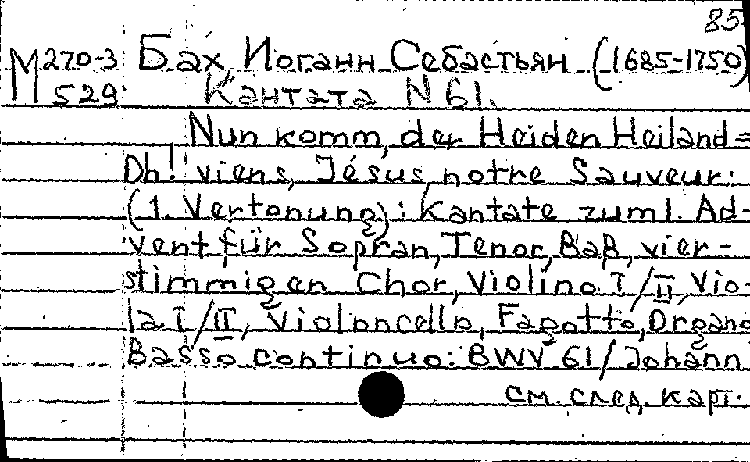 85
М270-3 Бах, Иоганн Себастьян (1685-1750)
529 Кантата N 61.
Nun komm, der Heiden Heiland=
Oh! viens, Jésus, notre Sauveur:
(1. Vertonung): Kantate zum 1. Ad-
vent für Sopran, Tenor, Baß, vier-
stimmigen Chor, Violino I/II, Vio-
la I/II, Violoncello, Fagotto, Organo
Basso continuo: BWV 61/Johann
см. след. карт.